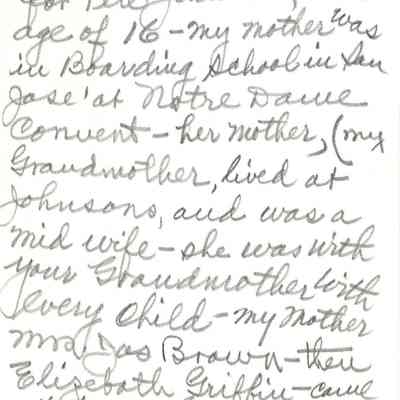 age of 16 - my mother was
in Boarding School in San
Jose' at Notre Dame
Convent - her mother, (my
Grandmother, lived at
Johnsons, and was a
mid wife - she was with
your Grandmother with
every child - my mother
Mrs. Jas Brown - then
Elizebath Griffin - came